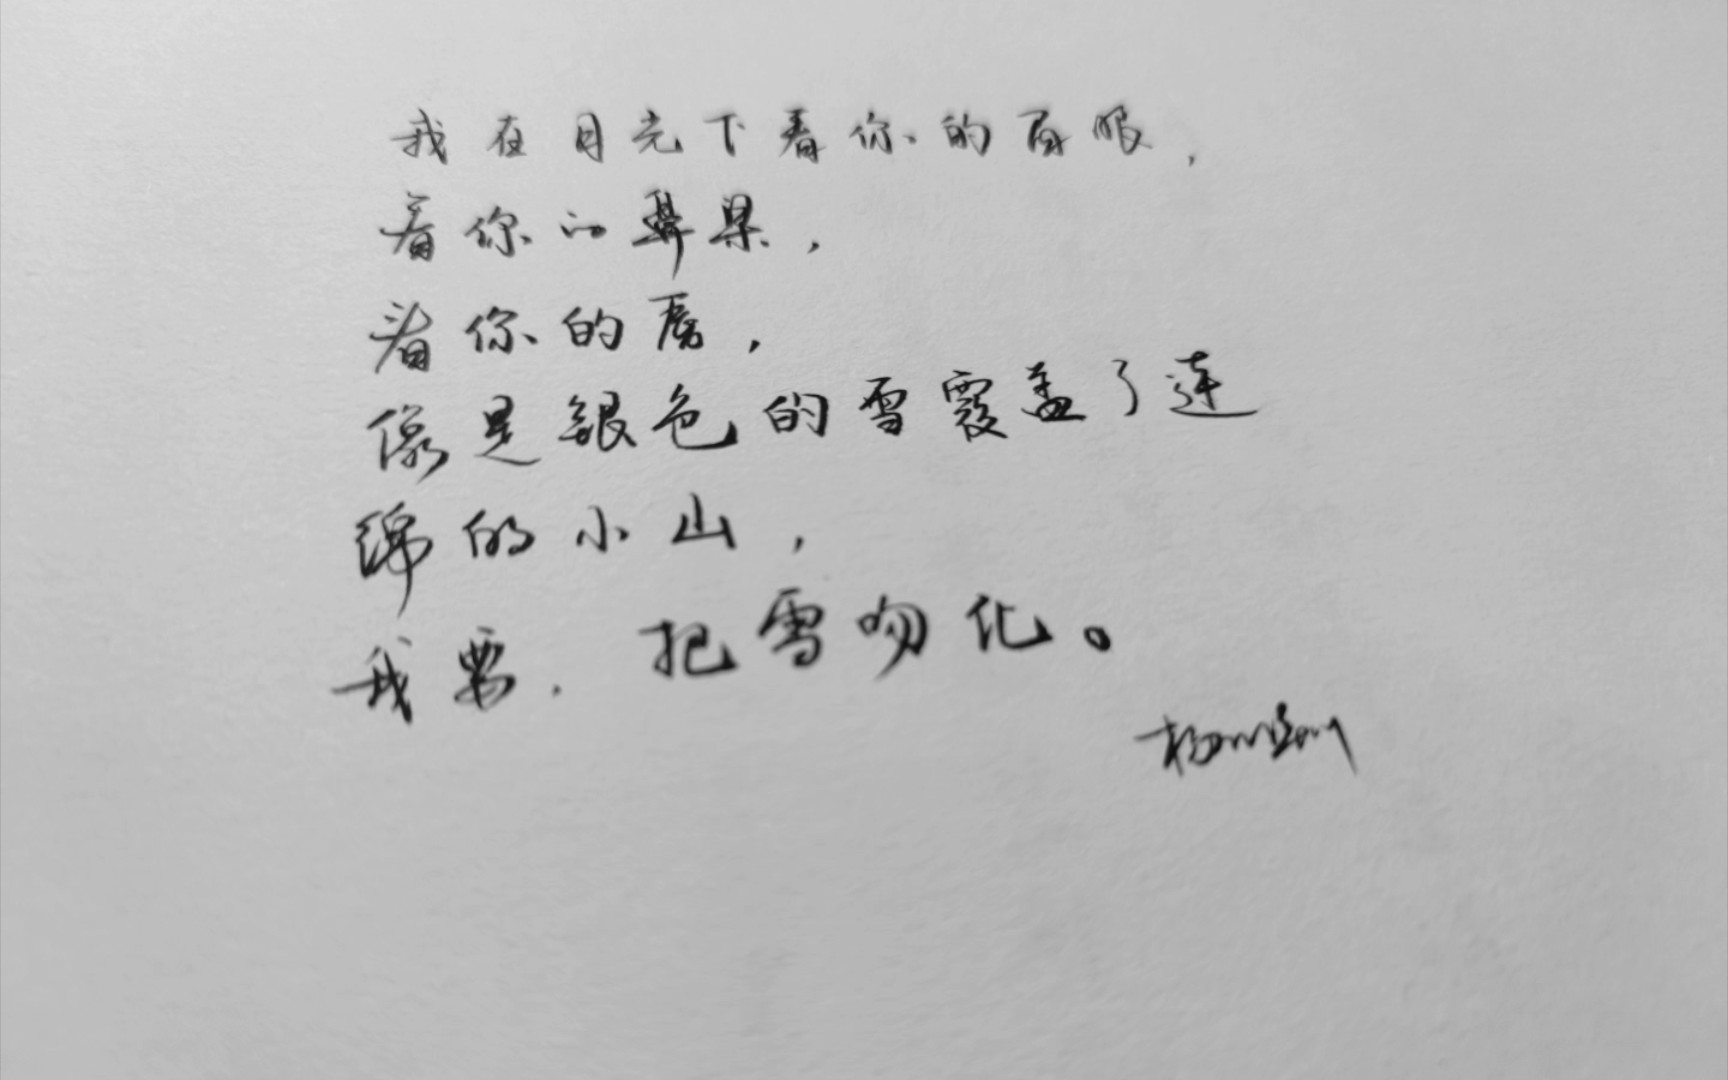 我在月光下看你的眉眼，
看你的鼻梁，
看你的唇，
像是銀色的雪覆盖了连
绵的小山，
我要，把雪吻化。